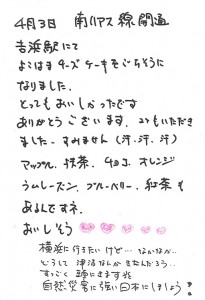 4月3日 南リアス線開通
吉浜駅にて
よこはまチーズケーキをごちそうに
なりました。
とってもおいしかったです
ありがとうございます、2こもいただき
ました～すみません（汗、汗、汗）
アップル、抹茶、チョコ、オレンジ
ラムレーズン、ブルーベリー、紅茶も
あるんですネ、
おいしそう
横浜に行きたいけど…なかなか…
どうして津波なんかきたんだろう…
すっごく頭にきますね
自然災害に強い日本にしましょう!